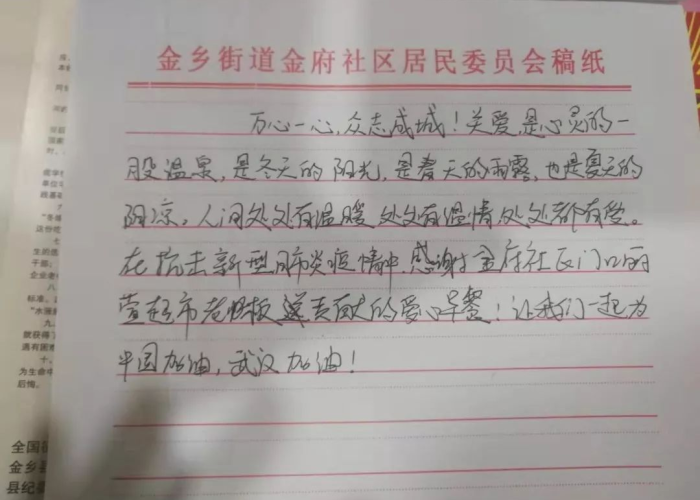 金乡街道金府社区居民委员会稿纸
万心一心,众志成城!关爱,是心灵的一
股温泉,是冬天的阳光,是春天的雨露,也是夏天的
阴凉。人间处处有温暖 处处有温情 处处都有爱。
在抗击新型肺炎疫情中,感谢金府社区门口的
萱超市老板 奉献的爱心早餐!让我们一起为
中国加油,武汉加油!
全国
金乡
县纪